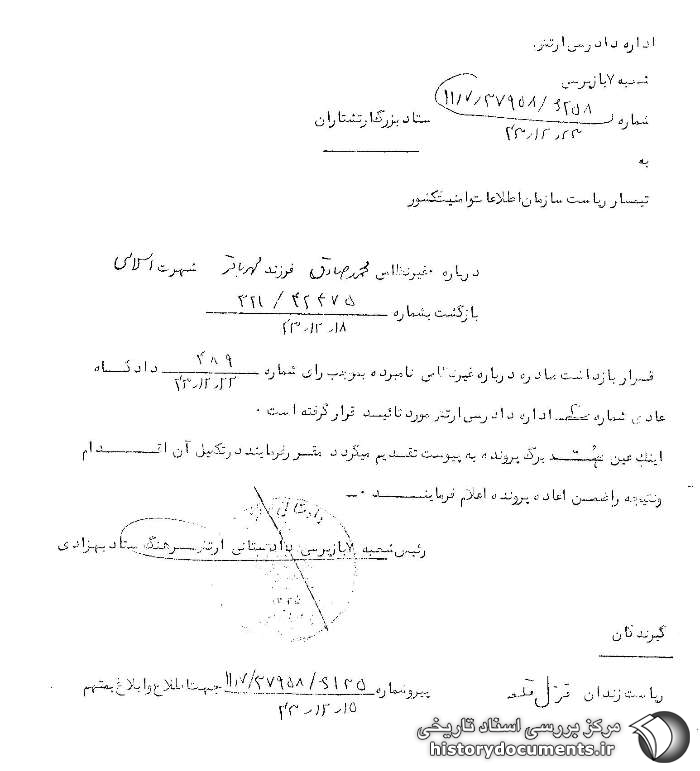 اداره دادرسی ارتش
شعبه ۷ بازپرسی
شماره ۱۱٫۷٫۳۷۹۵۸/۶۲۵۸ ستاد بزرگ ارتشتاران
۴۳٫۱۲٫۲۳
به
تیمسار ریاست سازمان اطلاعات و امنیت کشور
درباره غیرنظامی محمد صادق فرزند شهرت اسلامی
بازگشت بشماره ۴۲۴۷۵ / ۳۲۱
۴۳٫۱۲٫۱۸
قرار بازداشت صادره درباره غیرنظامی نامبرده بموجب رای شماره ۴۸۹ دادگاه
۴۳٫۱۲٫۲۲
عادی شماره اداره دادرسی ارتش مورد تائید قرار گرفته است ۰
اینک عین برگ پرونده به پیوست تقدیم میگردد مقرر فرمایند در تکمیل آن اقدام
و نتیجه را ضمن اعاده پرونده اعلام فرمایند ۰
رئیس شعبه ۷ بازپرسی دادستانی ارتش سرهنگ ستاد بهزادی
گیرندگان
ریاست زندان قزل قلعه پیرو شماره ۱۱٫۷/۳۷۹۵۸/۶۱۲۵ جهت اطلاع و ابلاغ بمتهم
۴۳٫۱۲٫۱۵
مرکز بررسی اسناد تاریخی
historydocuments.ir